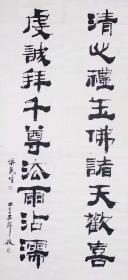 清心禮玉佛諸天歡喜
虔誠拜千尊法雨沾濡